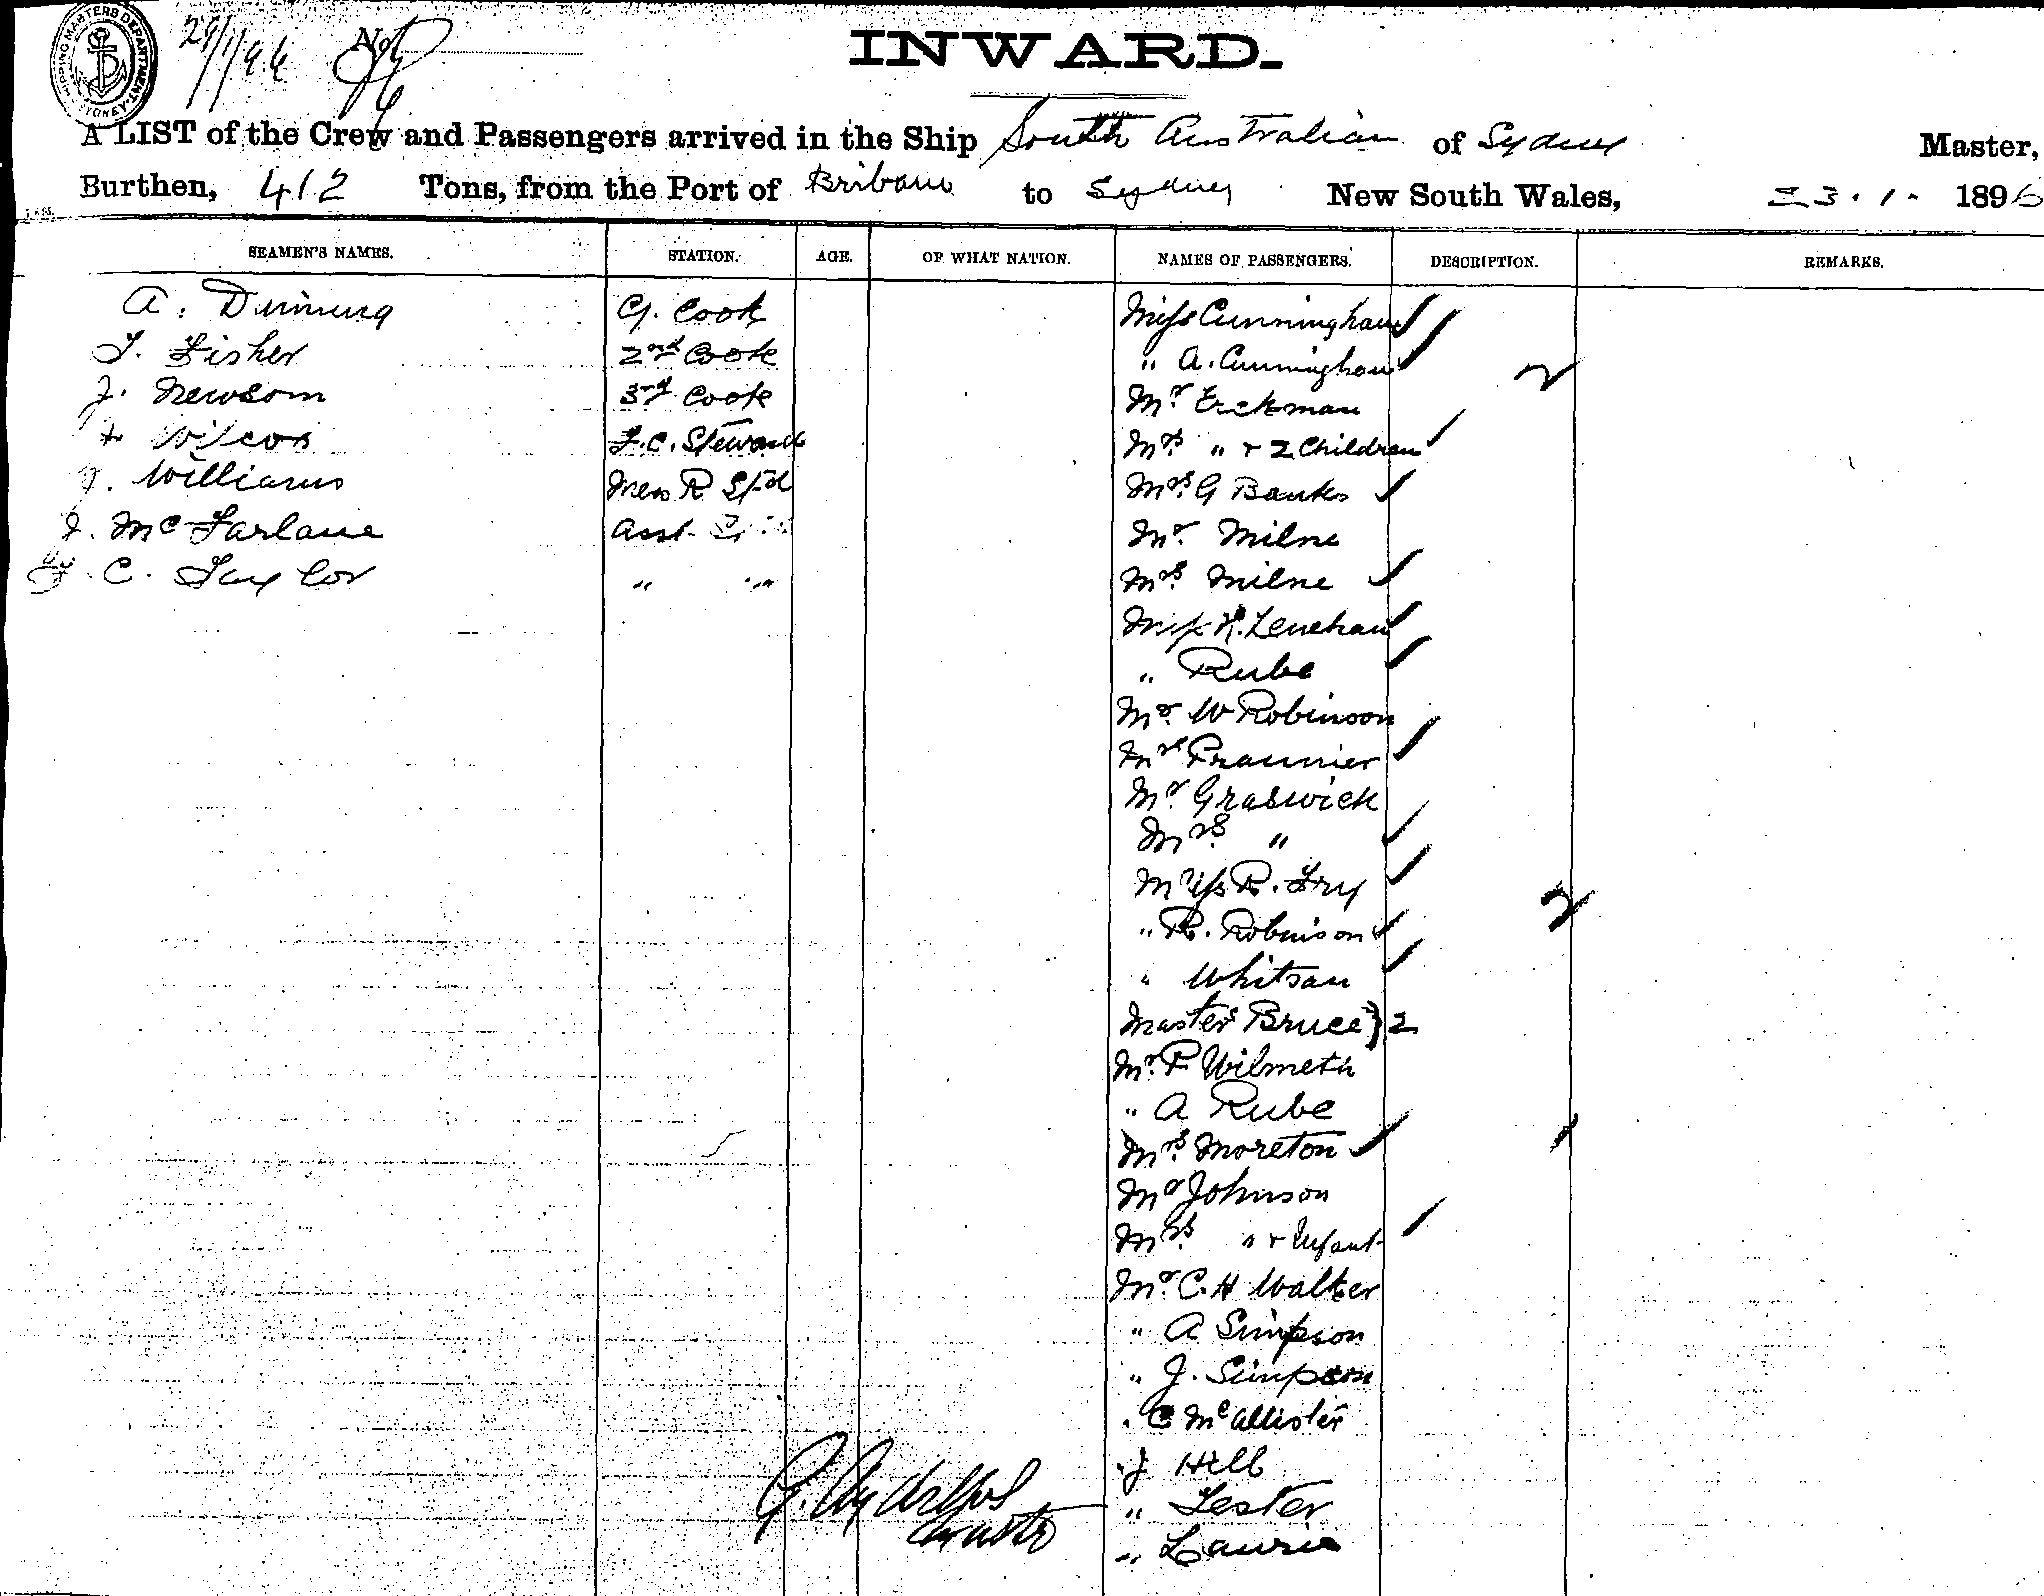 SHIPPING MASTERS DEPARTMENT SYDNEY
INWARD.
A LIST of the Crew and Passengers arrived in the Ship South Australian of Sydney Master,
Burthen, 412 Tons, from the Port of Brisbane to Sydney New South Wales, 23.1. 1896
SEAMEN'S NAMES. STATION. AGE. OF WHAT NATION. NAMES OF PASSENGERS. DESCRIPTION. REMARKS.
A. Dinning Cook Miss Cunningham
T. Fisher 2nd Cook " A. Cunningham 2
J. Newsom 3rd Cook Mr Erckman
Wilcox F.C. Steward Mrs " + 2 Children
J. Williams Mess R Std Mrs G Banks
J. McFarlane Asst Mr Milne
C. Taylor " " Mrs Milne
Miss K. Lenehan
" Rube
Mr W Robinson
Mrs Praunier
Mr Graswick
Mrs "
Miss R. Fry
" R. Robinson 2
" Whitsan
Master Bruce } 2
Mr P Wilmeth
" A Rube
Mrs Moreton 1
Mr Johnson
Mrs " + Infant
Mr C. H Walker
" A Simpson
" J. Simpson
" C McAllister
" J Hill
" Lester
" Laurie
Master